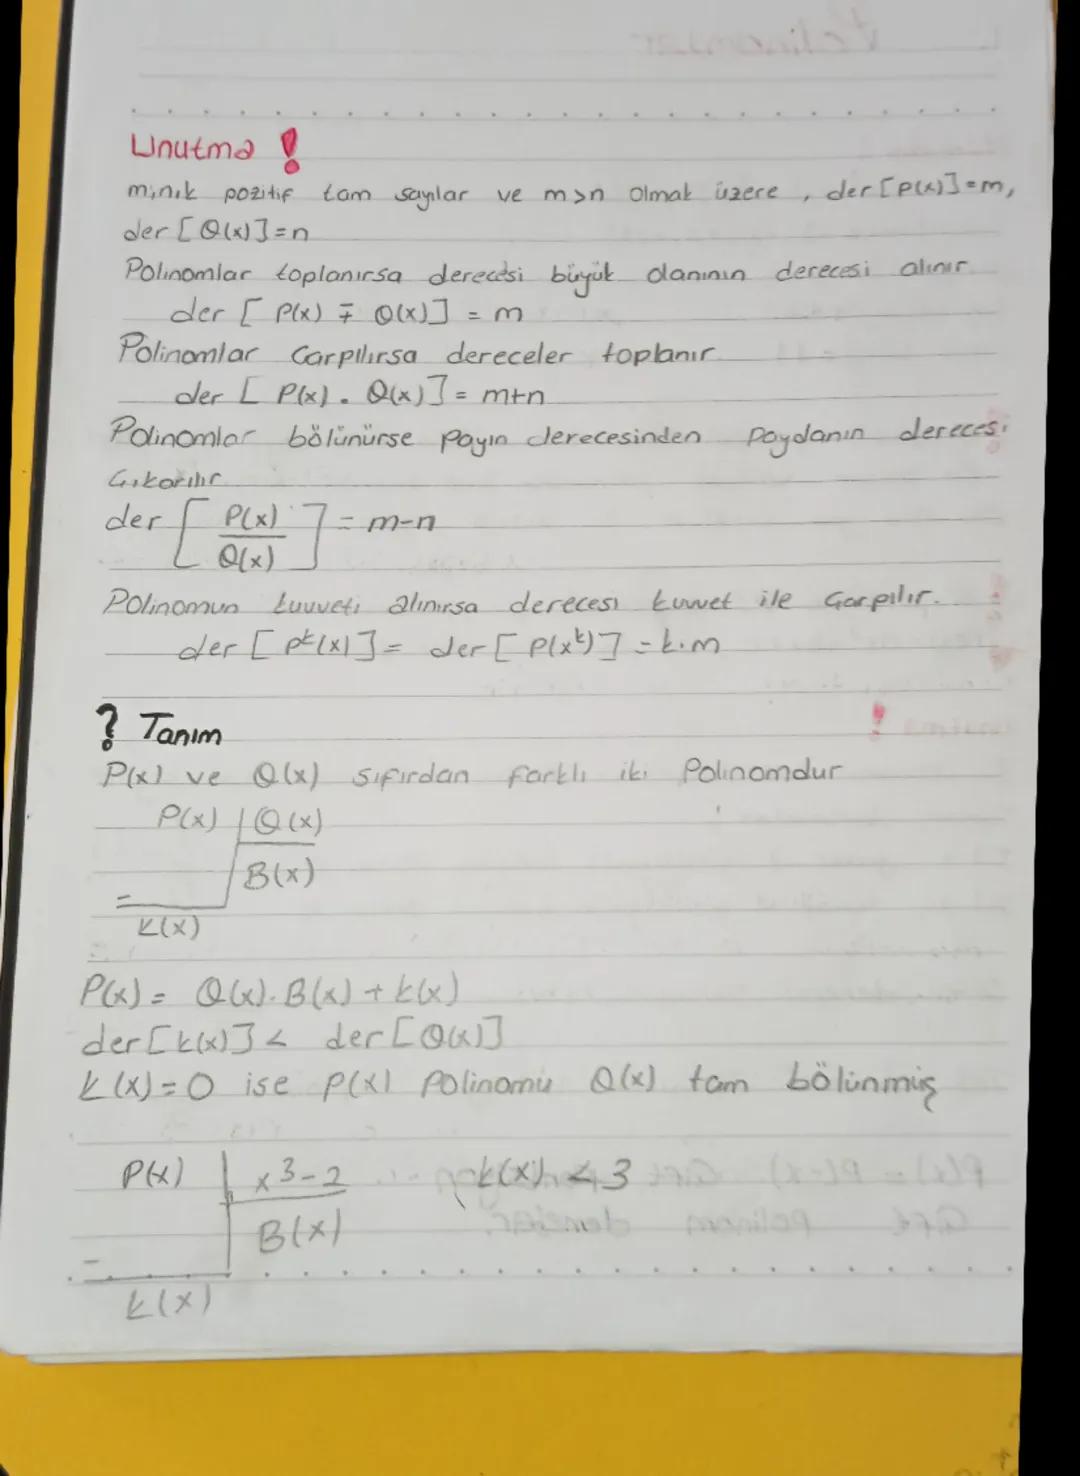 Unutma !
m,n,k pozitif tam sayılar ve m>n olmak üzere , der [P(x)]=m,
der [Q(x)]=n
Polinomlar toplanırsa derecesi büyük olanının derecesi alınır.
der [ P(x) ∓ Q(x)] = m
Polinomlar Çarpılırsa dereceler toplanır
der [ P(x) . Q(x)] = m+n
Polinomlar bölünürse payın derecesinden paydanın derecesi
Çıkarılır
der [ P(x) / Q(x) ] = m-n
Polinomun kuvveti alınırsa derecesi kuvvet ile Çarpılır.
der [ Pᵏ(x)] = der [ P(xᵏ)] = k.m
? Tanım
P(x) ve Q(x) sıfırdan farklı iki Polinomdur
P(x) | Q(x)
B(x)
K(x)
P(x) = Q(x). B(x) + k(x)
der [k(x)] < der [Q(x)]
k(x)=0 ise P(x) Polinomu Q(x) tam bölünmüş
P(x) | x³-2 k(x) < 3
B(x)
k(x)